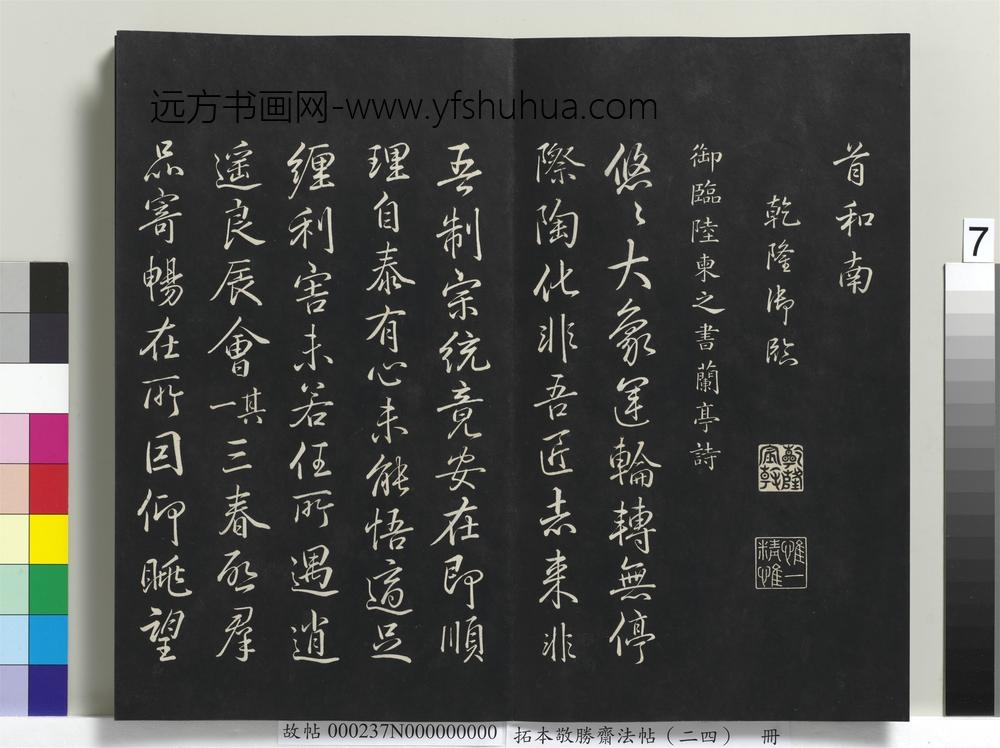 远方书画网-www.yfshuhua.com
首和南
乾隆御臨
乾隆宸翰
惟精惟一
御臨陸柬之書蘭亭詩
悠〻大象運輪轉無停
際陶化非吾匠去来非
吾制宗統竟安在即順
理自泰有心未能悟適足
纏利害未若任所遇逍
遥良辰會其一三春啓羣
品寄暢在所因仰眺望
7
故帖 000237N000000000
拓本敬勝齋法帖（二四） 冊